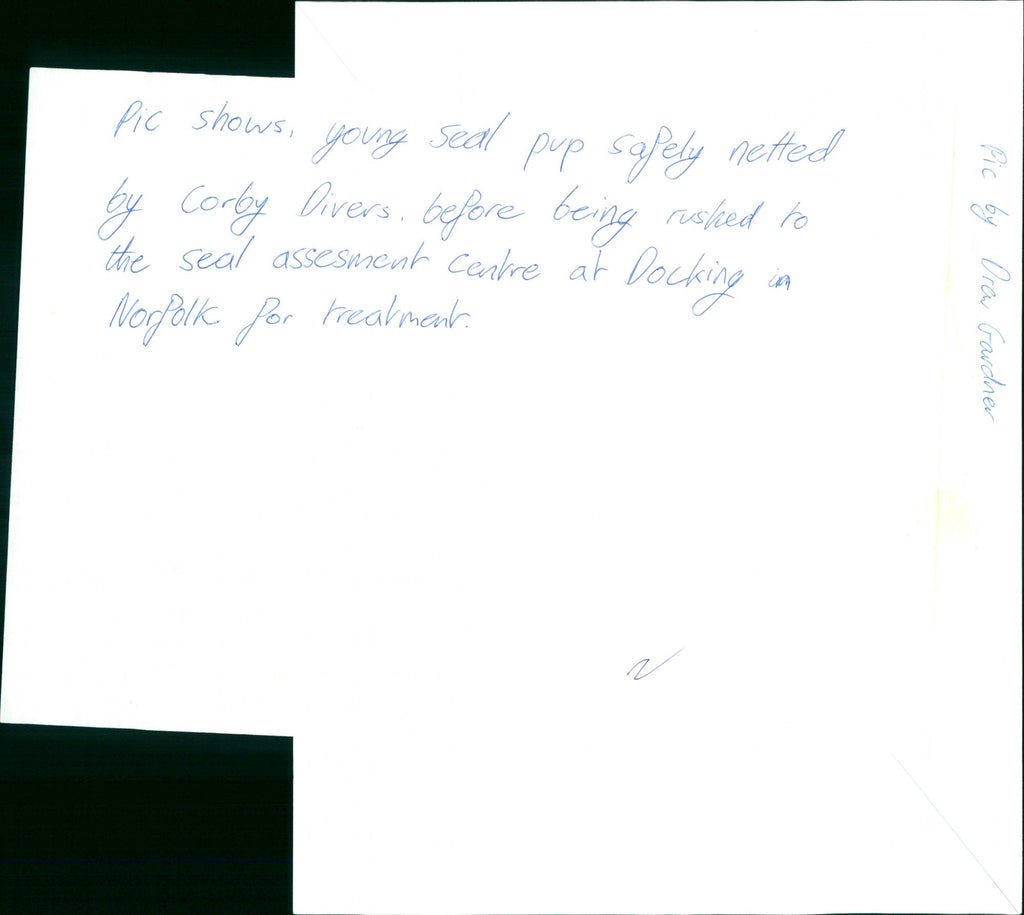 Pic shows, young seal pup safely netted
by Corby Divers. before being rushed to
the seal assesment centre at Docking in
Norfolk for treatment.
Pic by Drew Gardner
N